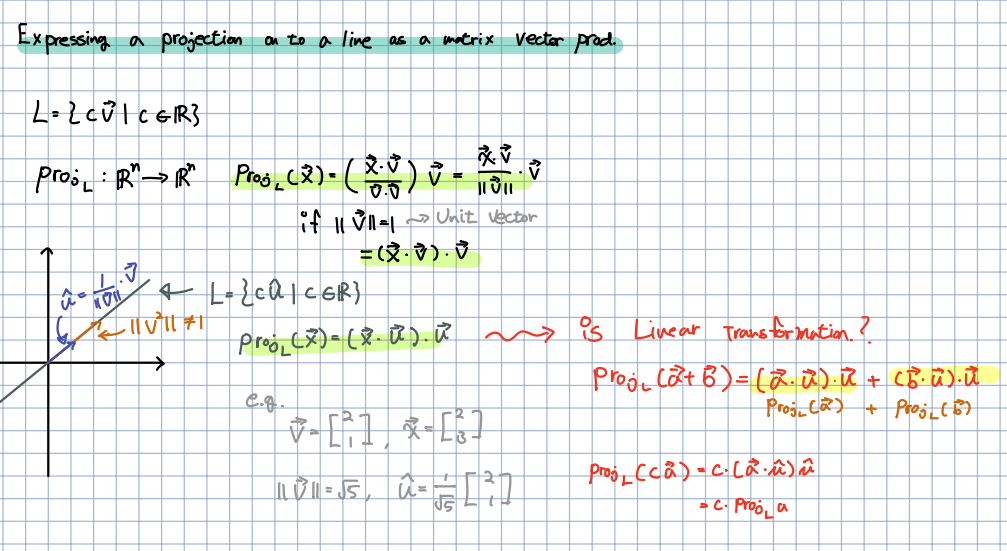 Expressing a projection on to a line as a matrix vector prod.
L = { c v⃗ | c ∈ ℝ }
Proj_L : ℝⁿ → ℝⁿ
Proj_L (x⃗) = ( x⃗·v⃗ / v⃗·v⃗ ) v⃗ = x⃗·v⃗ / ||v⃗|| · v⃗
if ||v⃗|| = 1 → Unit vector
= (x⃗·v⃗)·v⃗
û = 1/||v⃗|| · v⃗
← L = { c û | c ∈ ℝ }
← ||v²|| ≠ 1
Proj_L (x⃗) = (x⃗·u⃗)·u⃗
→ is Linear Transformation?
Proj_L (a⃗ + b⃗) = (a⃗·u⃗)·u⃗ + (b⃗·u⃗)·u⃗
Proj_L (a⃗) + Proj_L (b⃗)
e.g.
v⃗ = [2 1], x⃗ = [2 3]
||v⃗|| = √5, û = 1/√5 [2 1]
Proj_L (c a⃗) = c·(a⃗·û) û
= c· Proj_L a